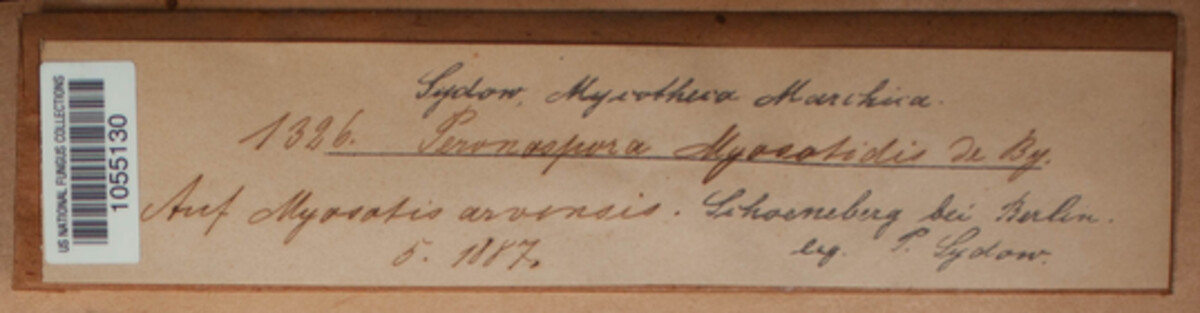 US NATIONAL FUNGUS COLLECTIONS
1055130
Sydow, Mycotheca Marchica.
1326. Peronospora Myosotidis de By.
Auf Myosotis arvensis. Schoeneberg bei Berlin.
5. 1887. leg. P. Sydow.